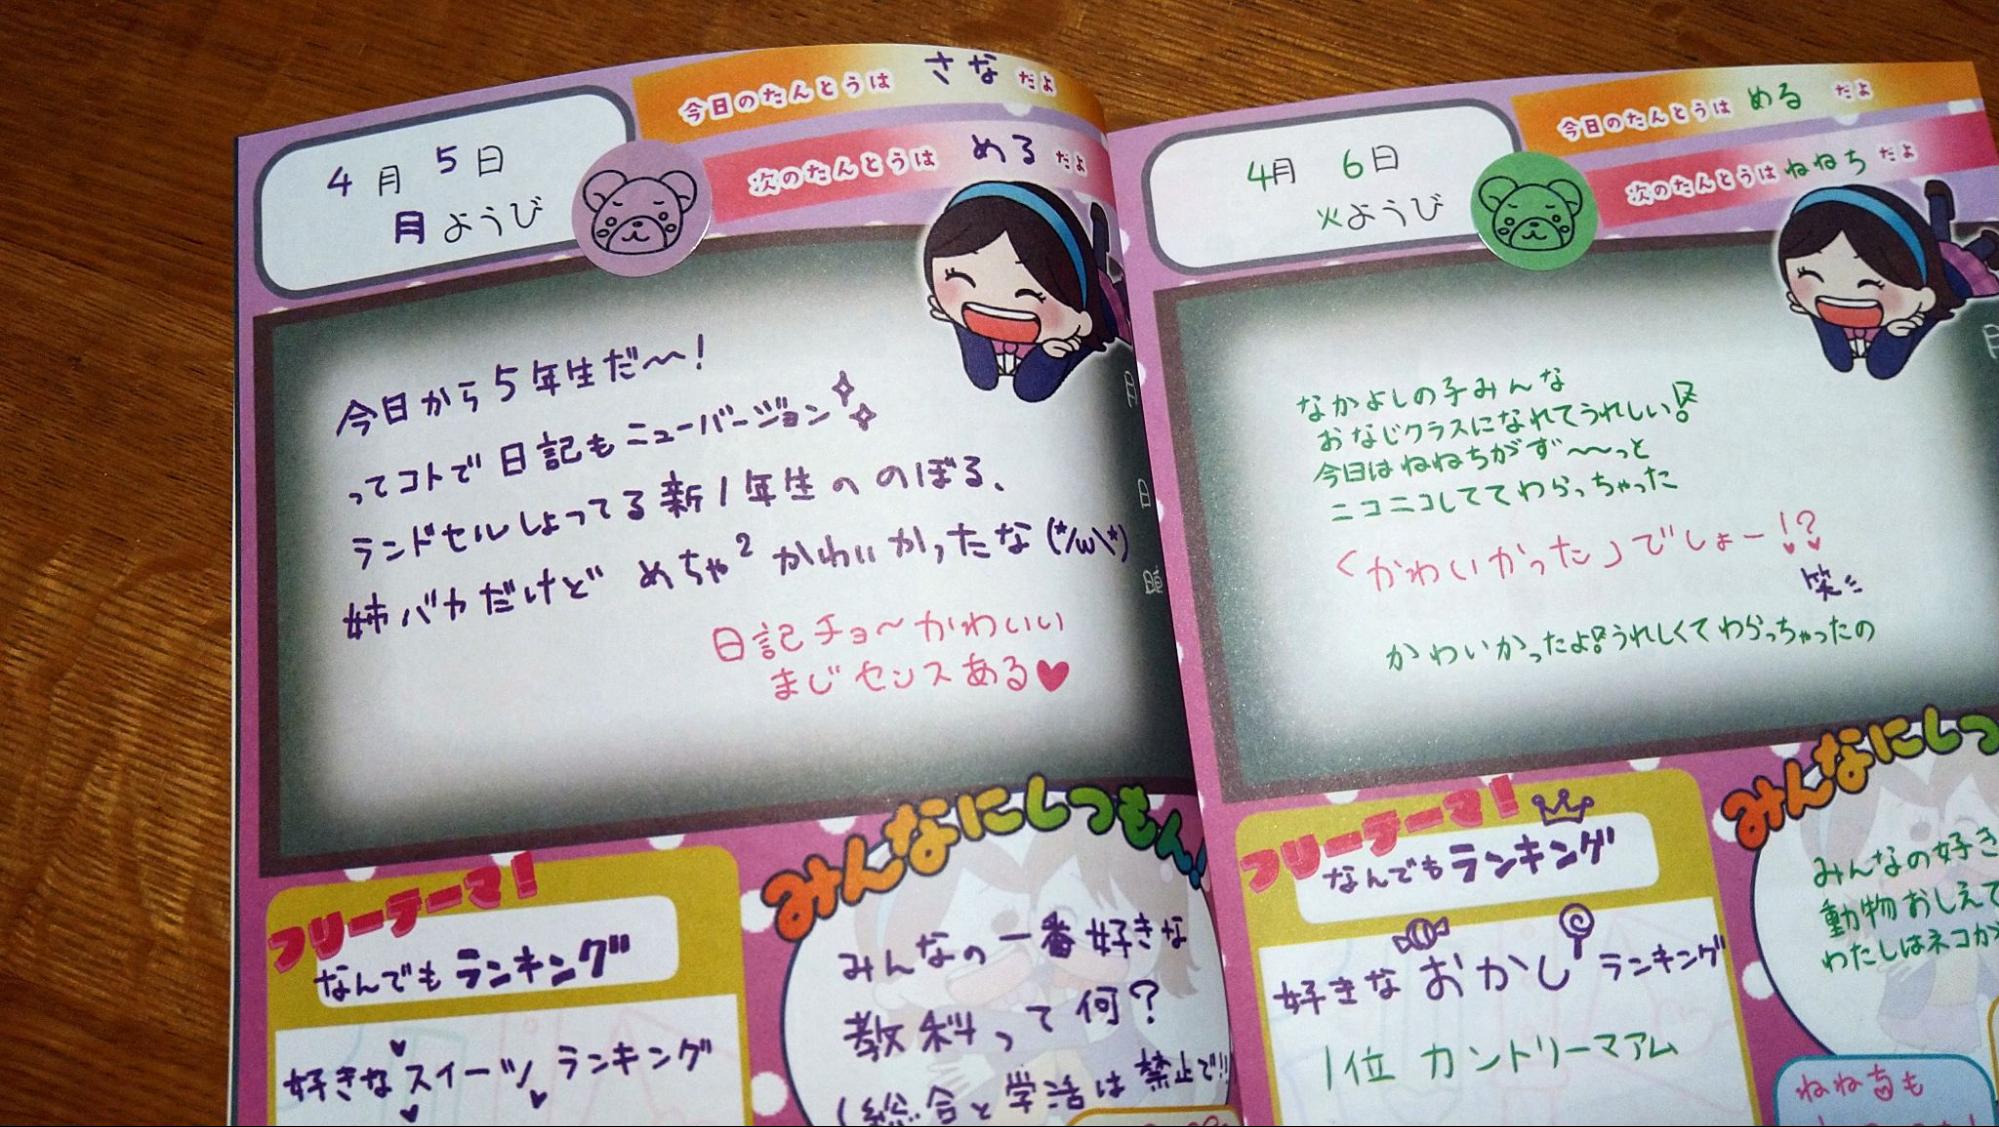 今日のたんとうは さな だよ
次のたんとうは める だよ
4月 5日
月ようび
今日から5年生だ〜!
ってコトで日記もニューバージョン
ランドセルしょってる新1年生へのぼる、
姉バカだけど めちゃ² かわいかったな(*/ω\*)
日記チョ〜かわいい
まじセンスある♥
フリーテーマ!
なんでもランキング
好きなスイーツランキング
みんなにしつもん!
みんなの一番好きな
教科って何?
(総合と学活は禁止で!!
今日のたんとうは める だよ
次のたんとうは ねねち だよ
4月 6日
火ようび
なかよしの子みんな
おなじクラスになれてうれしい
今日はねねちがず〜〜っと
ニコニコしててわらっちゃった
くかわいかった」でしょー!?
笑
かわいかったよ うれしくてわらっちゃったの
フリーテーマ!
なんでもランキング
好きなおかしランキング
1位 カントリーマアム
みんなにしつ
みんなの好き
動物おしえて
わたしはネコか
ねねちも